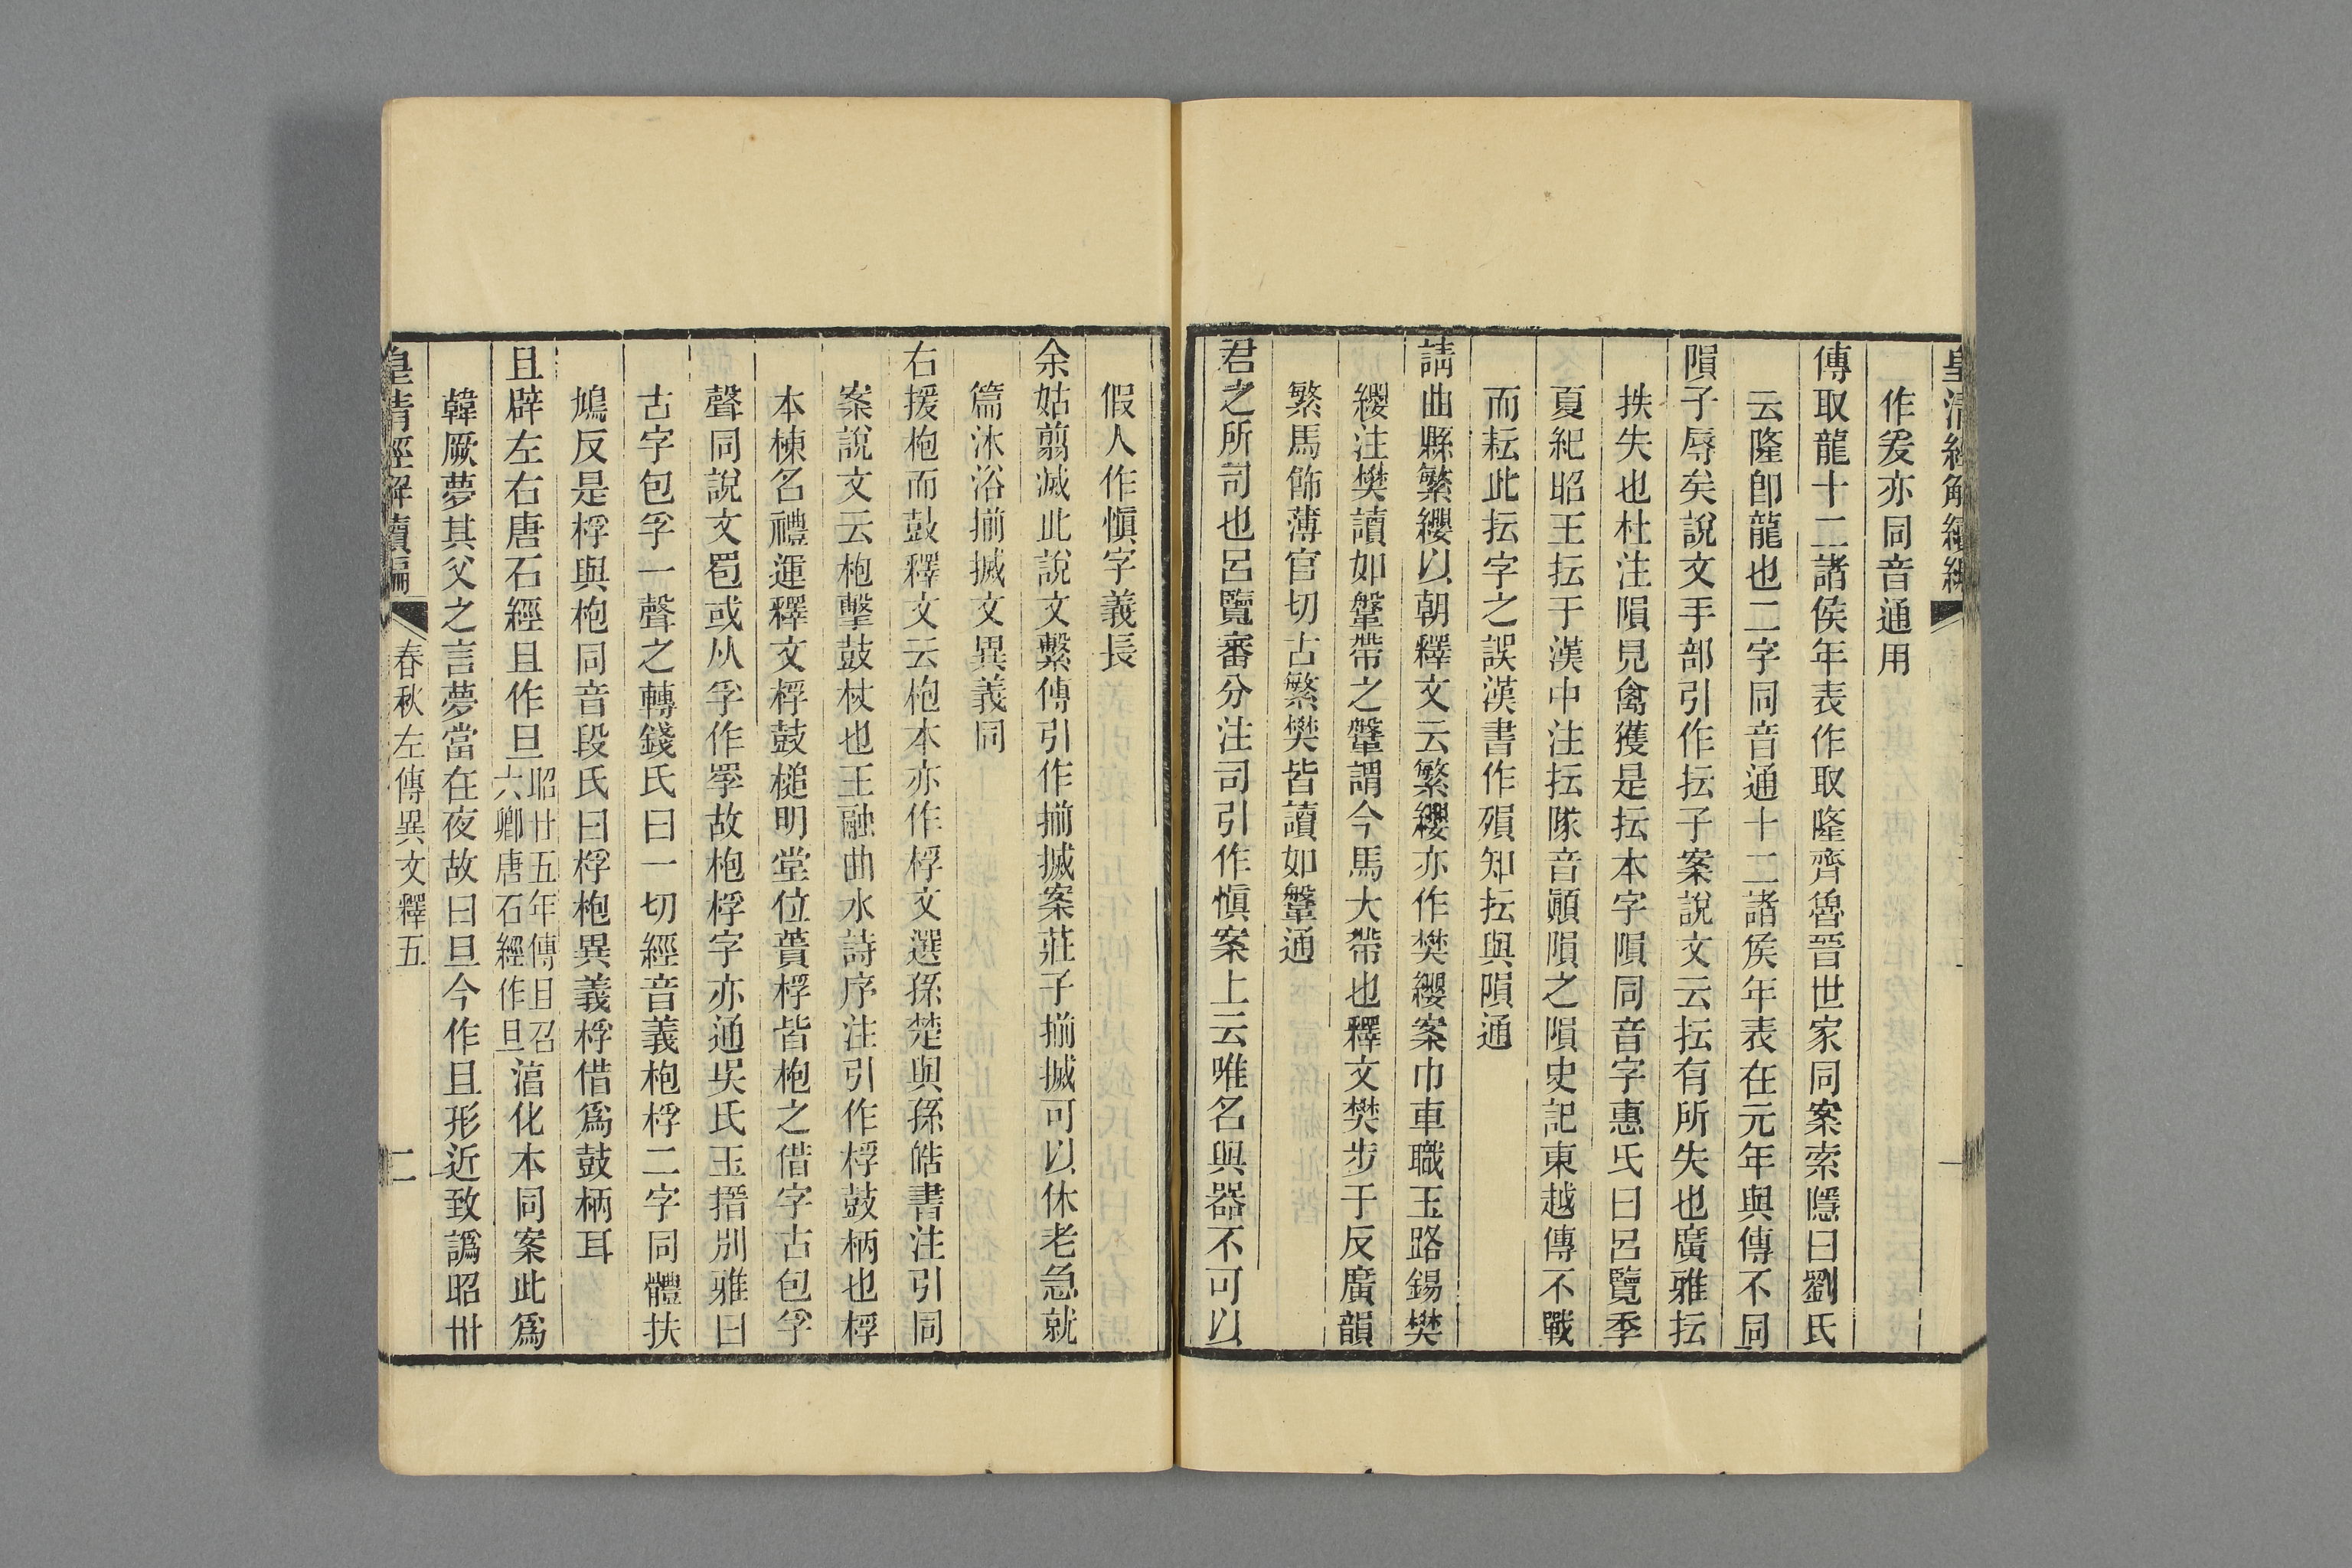 皇清經解續編
作爰亦同音通用
傳取龍十二諸侯年表作取隆齊魯晉世家同案索隱曰劉氏
云隆卽龍也二字同音通十二諸侯年表在元年與傳不同
隕子辱矣說文手部引作抎子案說文云抎有所失也廣雅抎
抶失也杜注隕見禽獲是抎本字隕同音字惠氏曰呂覽季
夏紀昭王抎于漢中注抎隊音顚隕之隕史記東越傳不戰
而耘此抎字之誤漢書作殞知抎與隕通
請曲縣繁纓以朝釋文云繁纓亦作樊纓案巾車職玉路錫樊
纓注樊讀如鞶帶之鞶謂今馬大帶也釋文樊步于反廣韻
繁馬飾薄官切古繁樊皆讀如鞶通
君之所司也呂覽審分注司引作愼案上云唯名與器不可以
假人作愼字義長
余姑翦滅此說文繫傳引作揃搣案莊子揃搣可以休老急就
篇沐浴揃搣文異義同
右援枹而鼓釋文云枹本亦作桴文選孫楚與孫皓書注引同
案說文云枹擊鼓杖也王融曲水詩序注引作桴鼓柄也桴
本棟名禮運釋文桴鼓槌明堂位蕢桴皆枹之借字古包孚
聲同說文罶或从孚作罦故枹桴字亦通吳氏玉搢別雅曰
古字包孚一聲之轉錢氏曰一切經音義枹桴二字同體扶
鳩反是桴與枹同音段氏曰桴枹異義桴借爲鼓柄耳
且辟左右唐石經且作旦昭廿五年傳且召六卿唐石經作旦湻化本同案此爲
韓厥夢其父之言夢當在夜故曰旦今作且形近致譌昭卅
皇清經解續編 春秋左傳異文釋五 二